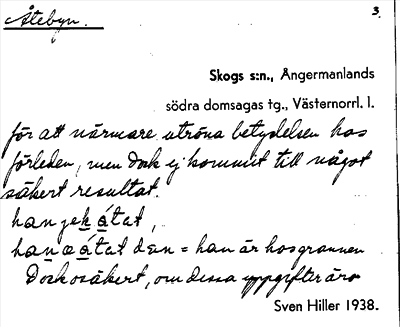 Åtebyn.
3.
Skogs s:n., Ångermanlands
södra domsagas tg., Västernorrl. l.
för att närmare utröna betydelsen hos
förleden, men dock ej kommit till något
säkert resultat.
han jek átat,
han ä átat den = han är hos grannen
Dock osäkert, om dessa uppgifter äro
Sven Hiller 1938.